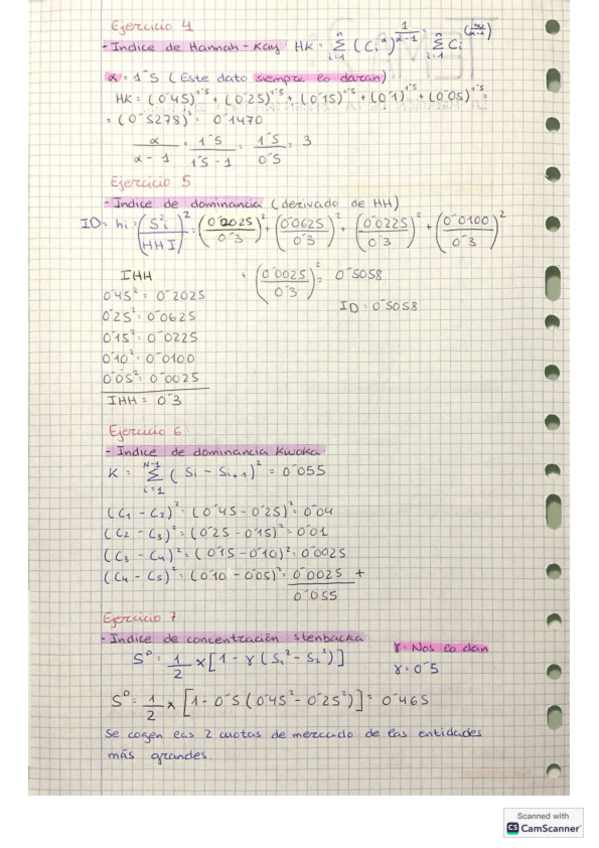 Ejercicio 4
- Indice de Hannah - Kay HK = Σ i=1 n (Ci^α)^1/α-1 = Σ i=1 n Ci^(α/α-1)
α = 1´5 (Este dato siempre lo darán)
HK = (0´45)^1´5 + (0´25)^1´5 + (0´15)^1´5 + (0´1)^1´5 + (0´05)^1´5 =
= (0´5278)^3 = 0´1470
α/α-1 = 1´5/1´5-1 = 1´5/0´5 = 3
Ejercicio 5
- Indice de dominancia (derivado de HH)
ID = hi = (S²i/HHI)² = (0´2025/0´3)² + (0´0625/0´3)² + (0´0225/0´3)² + (0´0100/0´3)²
+ (0´0025/0´3)² = 0´5058
IHH
0´45² = 0´2025
ID = 0´5058
0´25² = 0´0625
0´15² = 0´0225
0´10² = 0´0100
0´05² = 0´0025
IHH = 0´3
Ejercicio 6
- Indice de dominancia Kwoka
K = Σ i=1 N-1 (Si - Si+1)² = 0´055
(C1 - C2)² = (0´45 - 0´25)² = 0´04
(C2 - C3)² = (0´25 - 0´15)² = 0´01
(C3 - C4)² = (0´15 - 0´10)² = 0´0025
(C4 - C5)² = (0´10 - 0´05)² = 0´0025 +
0´055
Ejercicio 7
- Indice de concentración stenbacka
γ = Nos lo dan
S^D = 1/2 x [1 - γ (S1² - S2²)]
γ = 0´5
S^D = 1/2 x [1 - 0´5 (0´45² - 0´25²)] = 0´465
Se cogen las 2 cuotas de mercado de las entidades
más grandes.
Scanned with
CS CamScanner